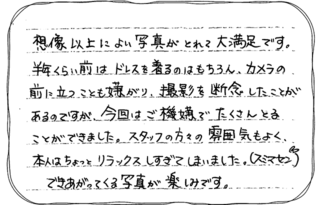 想像以上によい写真がとれて大満足です。
半年くらい前はドレスを着るのはもちろん、カメラの
前に立つことも嫌がり、撮影を断念したことが
あるのですが、今回はご機嫌でたくさんとる
ことができました。スタッフの方々の雰囲気もよく、
本人はちょっとリラックスしすぎてしまいました。(スミマセン)
できあがってくる写真が楽しみです。